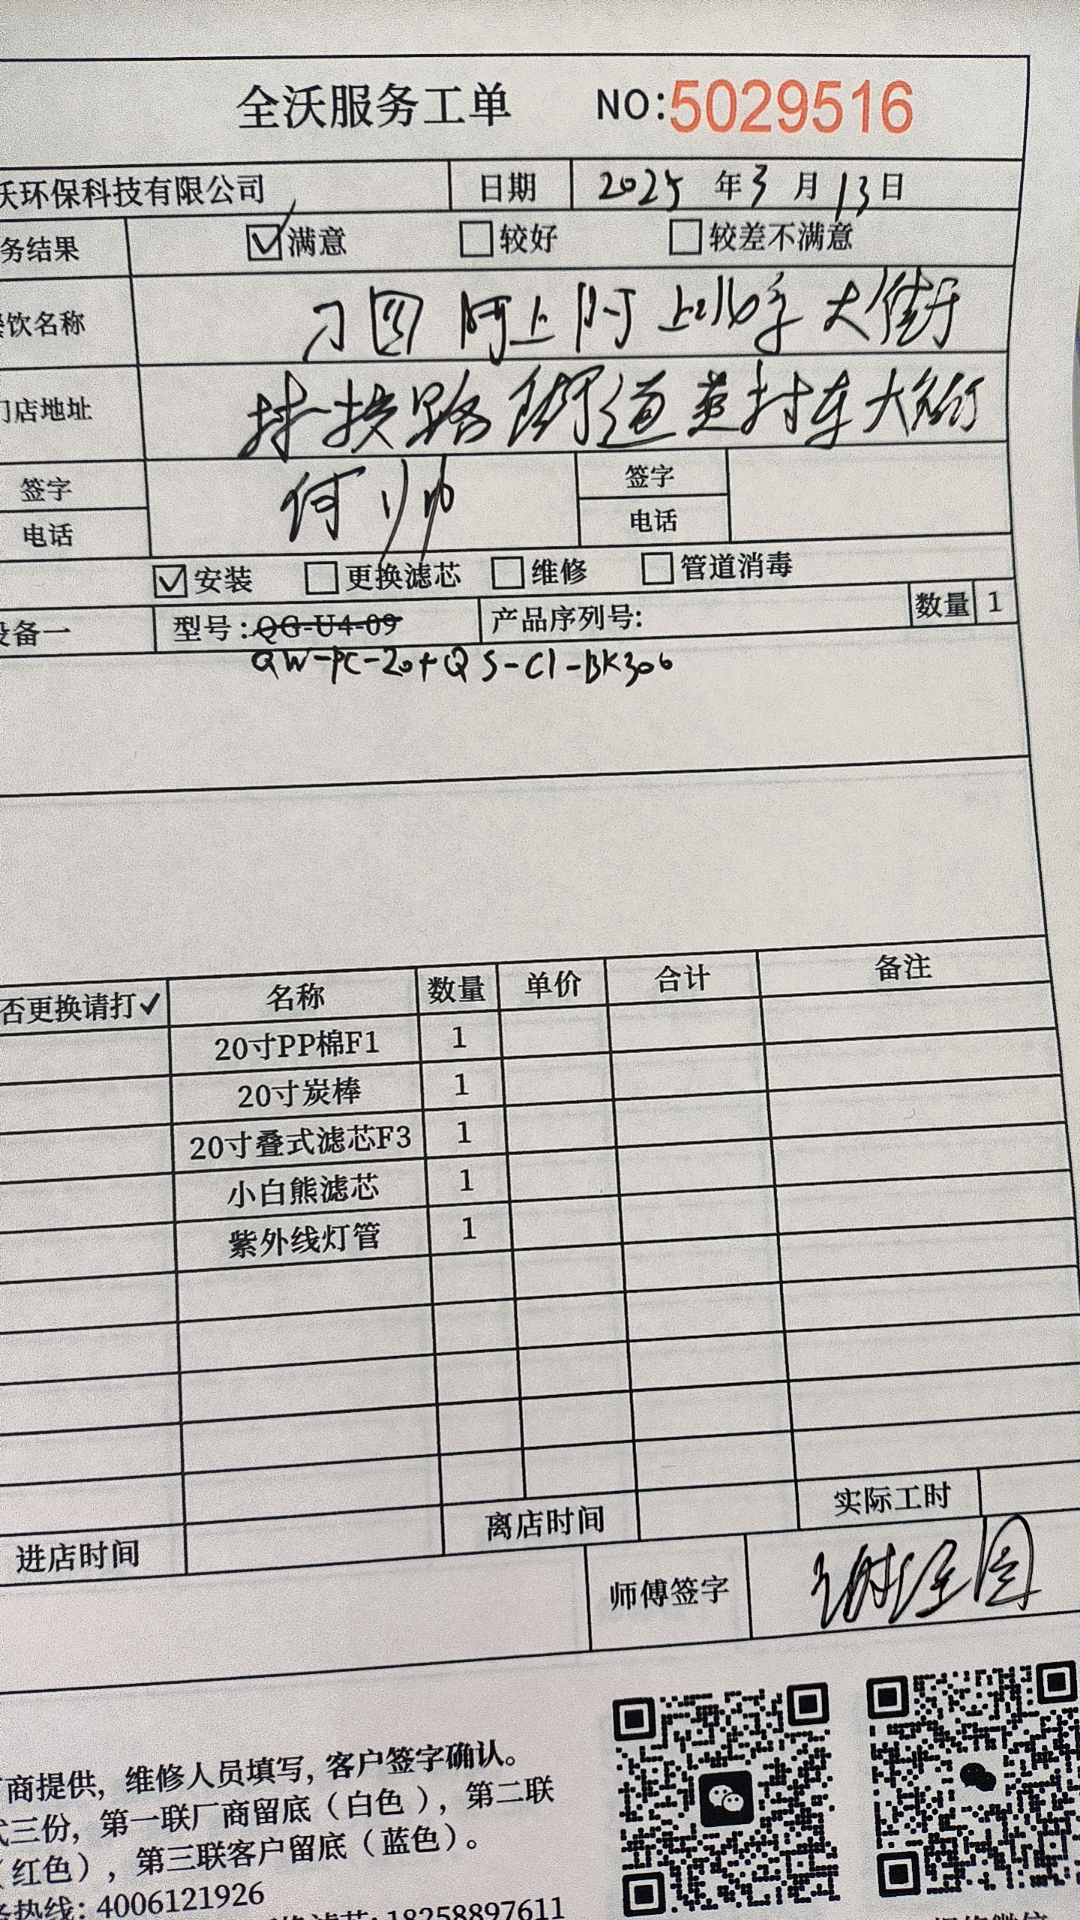 全沃服务工单 NO:5029516
沃环保科技有限公司 日期 2025年3月13日
务结果 ☑满意 ☐较好 ☐较差不满意
饮名称 大街
门店地址 路街道 村车大街
签字 何帅 签字
电话 电话
☑安装 ☐更换滤芯 ☐维修 ☐管道消毒
设备一 型号:QG-U4-09 产品序列号: 数量 1
QW-PC-20+QS-C1-BK306
否更换请打✓ 名称 数量 单价 合计 备注
20寸PP棉F1 1
20寸炭棒 1
20寸叠式滤芯F3 1
小白熊滤芯 1
紫外线灯管 1
进店时间 离店时间 实际工时
师傅签字
商提供，维修人员填写，客户签字确认。
式三份，第一联厂商留底（白色），第二联
（红色），第三联客户留底（蓝色）。
务热线：4006121926
换滤芯：18258897611